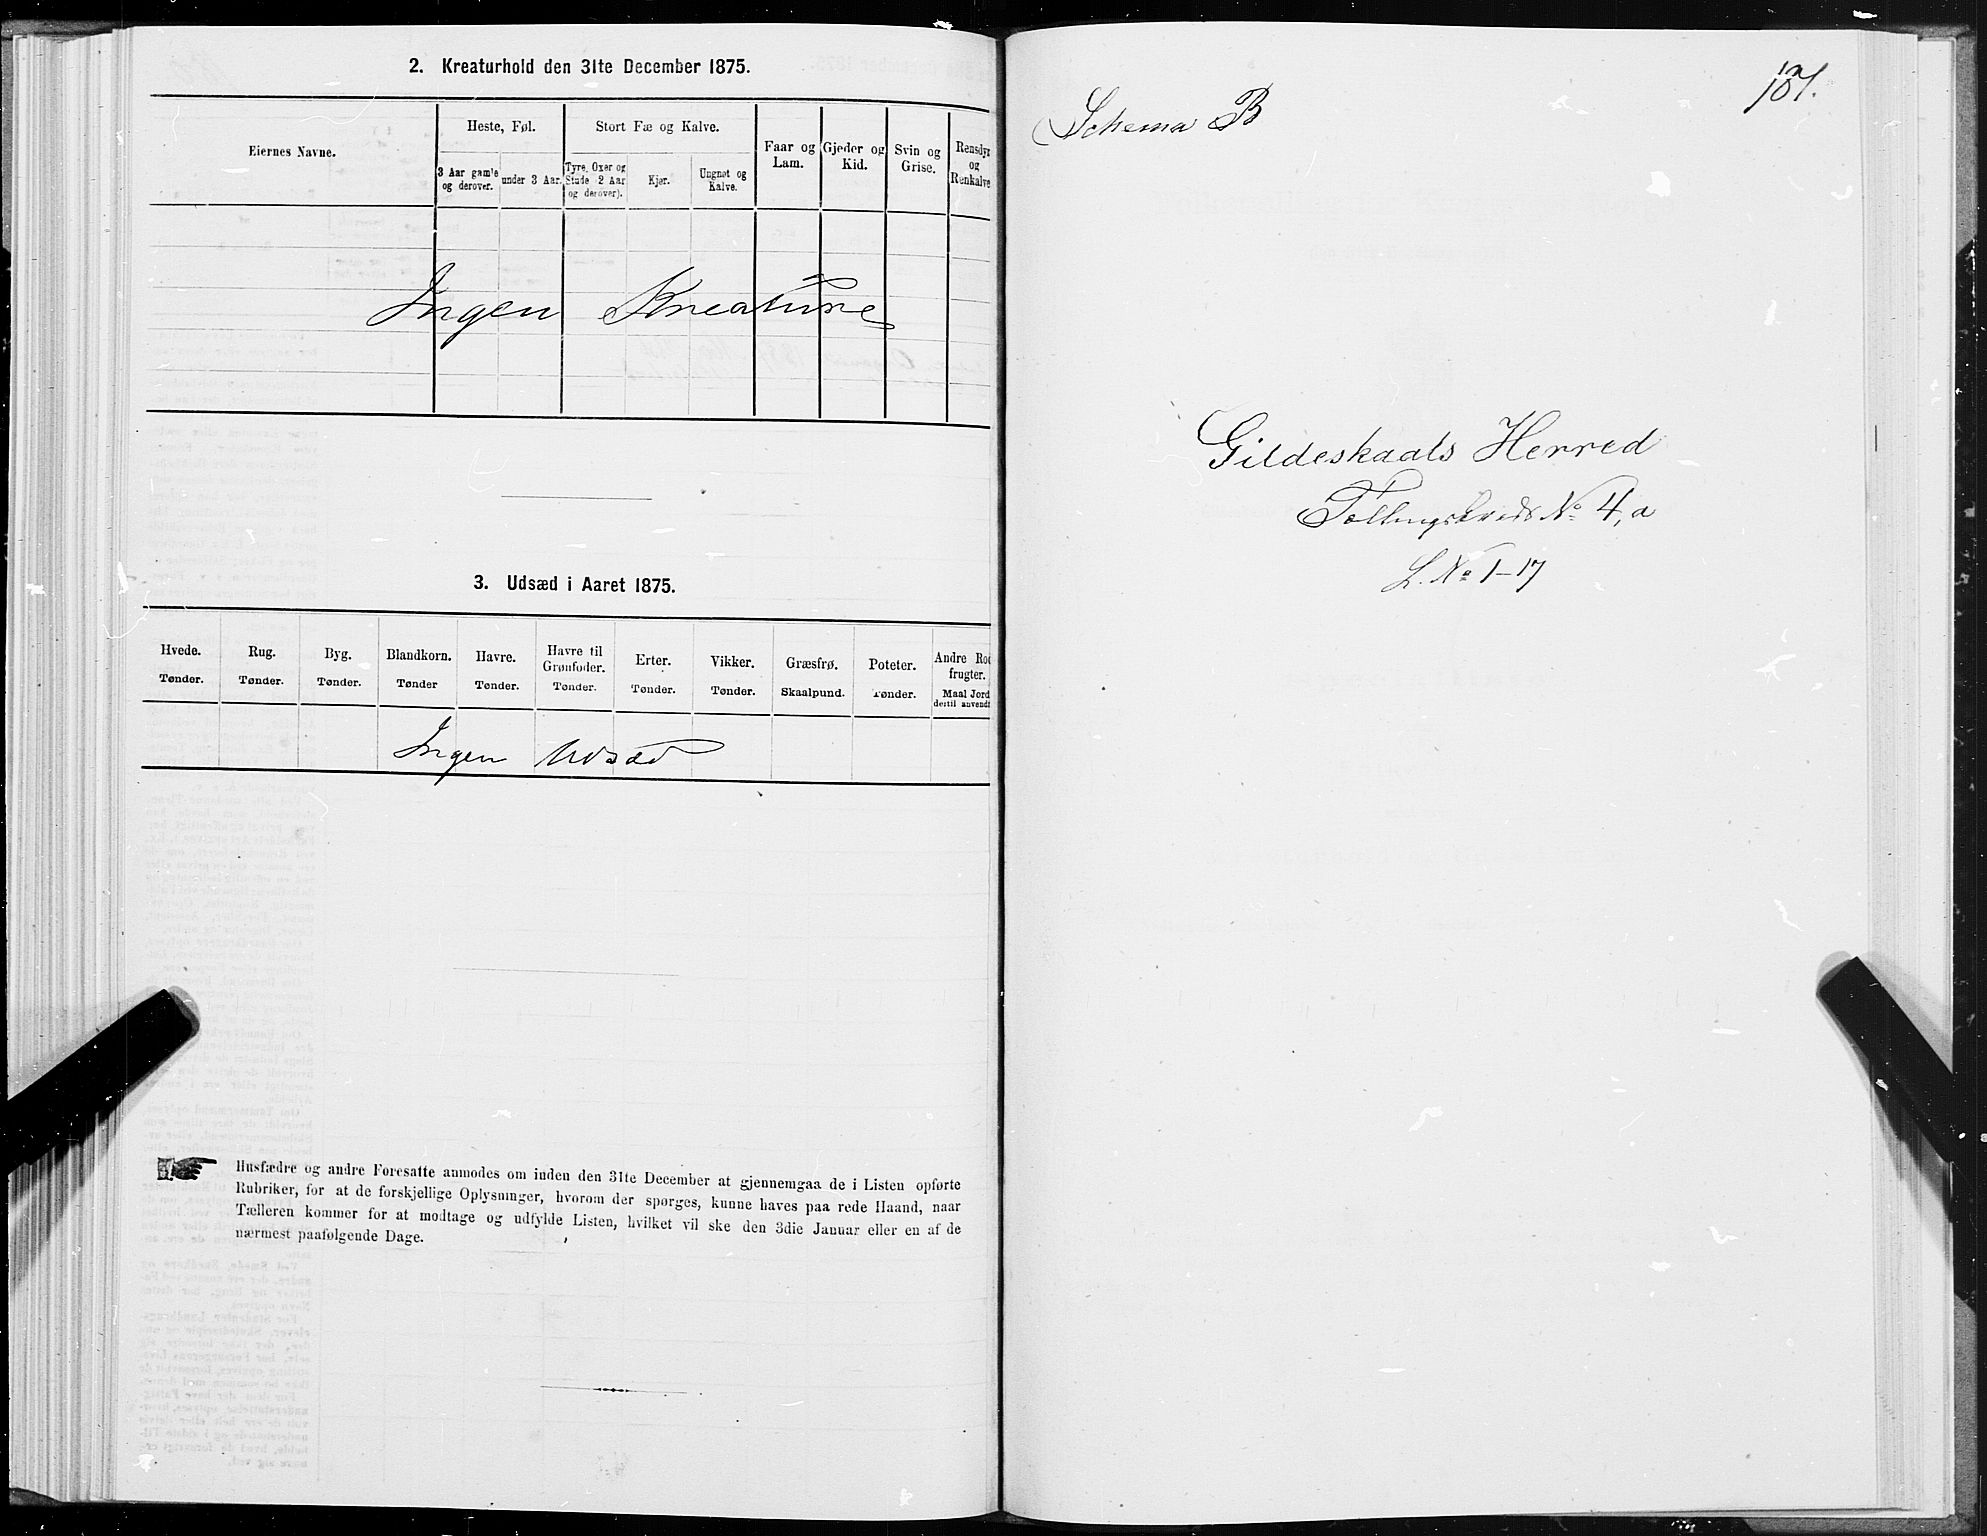 2. Kreaturhold den 31te December 1875.
Eiernes Navne.
Heste, Føl.
Stort Fæ og Kalve.
Faar og Lam.
Gjeder og Kid.
Svin og Grise.
Rensdyr og Renkalve
3 Aar gamle og derover.
under 3 Aar.
Tyre, Oxer og Stude 2 Aar og derover).
Kjør.
Ungnøt og Kalve.
Ingen Kreature
3. Udsæd i Aaret 1875.
Hvede. Rug. Byg. Blandkorn. Havre. Havre til Grønfoder. Erter. Vikker. Græsfrø. Poteter. Andre Rod frugter.
Tønder. Tønder. Tønder. Tønder Tønder. Tønder. Tønder. Tønder. Skaalpund. Tønder. Maal Jord dertil anvendt
Ingen Udsæd
Husfædre og andre Foresatte anmodes om inden den 31te December at gjennemgaa de i Listen opførte
Rubriker, for at de forskjellige Oplysninger, hvorom der spørges, kunne haves paa rede Haand, naar
Tælleren kommer for at modtage og udfylde Listen, hvilket vil ske den 3die Januar eller en af de
nærmest paafølgende Dage.
Schema B
Gildeskaals Herred
Tællingskreds No 4, a
L. No 1-17